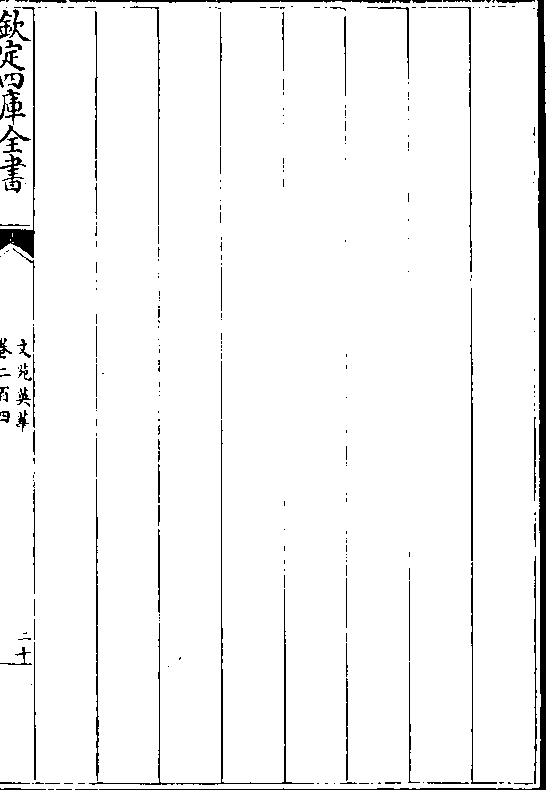 欽定四庫全書
文苑英華
卷二百四
二十